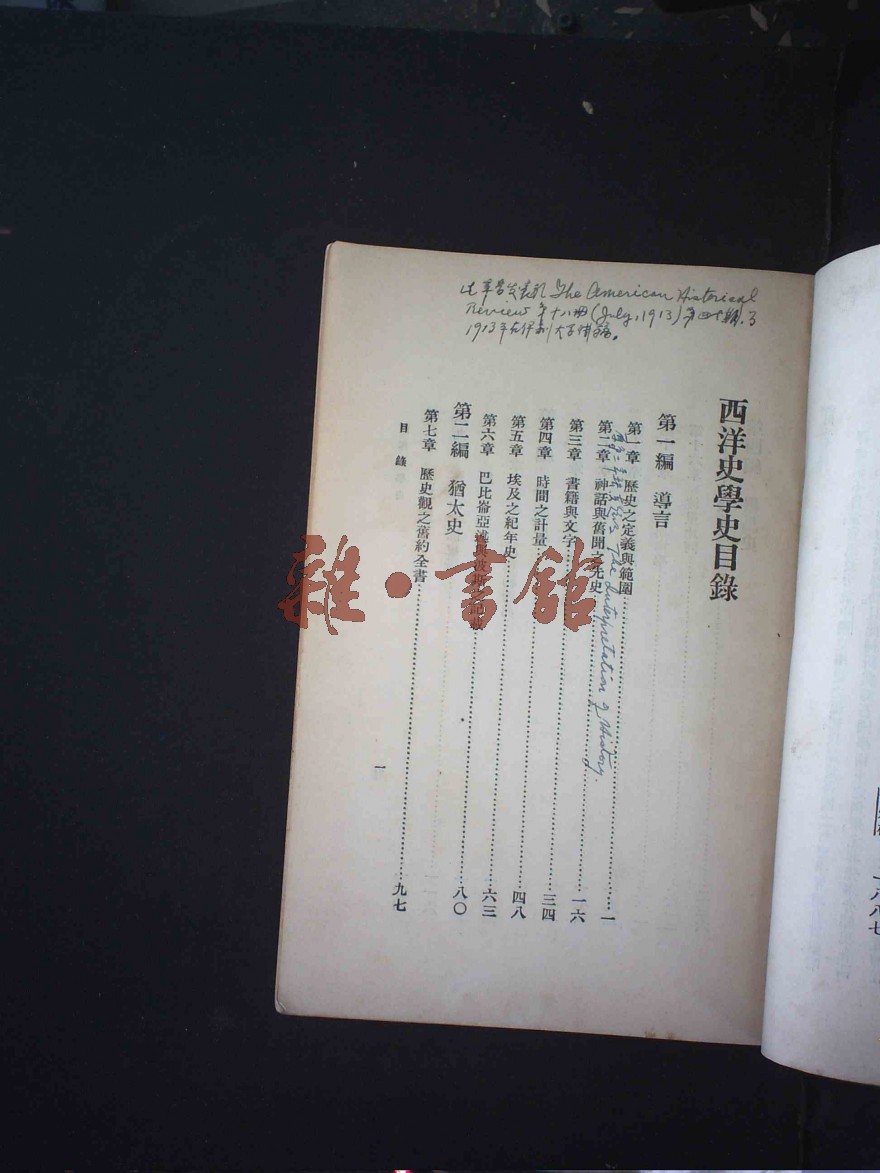 此章曾发表於 The American Historical
Review 第十八册 (July, 1913) 第四期.
1913年在伊利大古
西洋史學史目錄
第一編　導言
第一章　歷史之定義與範圍……一
The Interpretation of History.
第二章　神話與舊聞之先史……一六
第三章　書籍與文字……三四
第四章　時間之計量……四八
第五章　埃及之紀年史……六三
第六章　巴比崙亞述與波斯之記載……八〇
第二編　猶太史
第七章　歷史觀之舊約全書……九七
目錄
一
雜·書館
一八八七